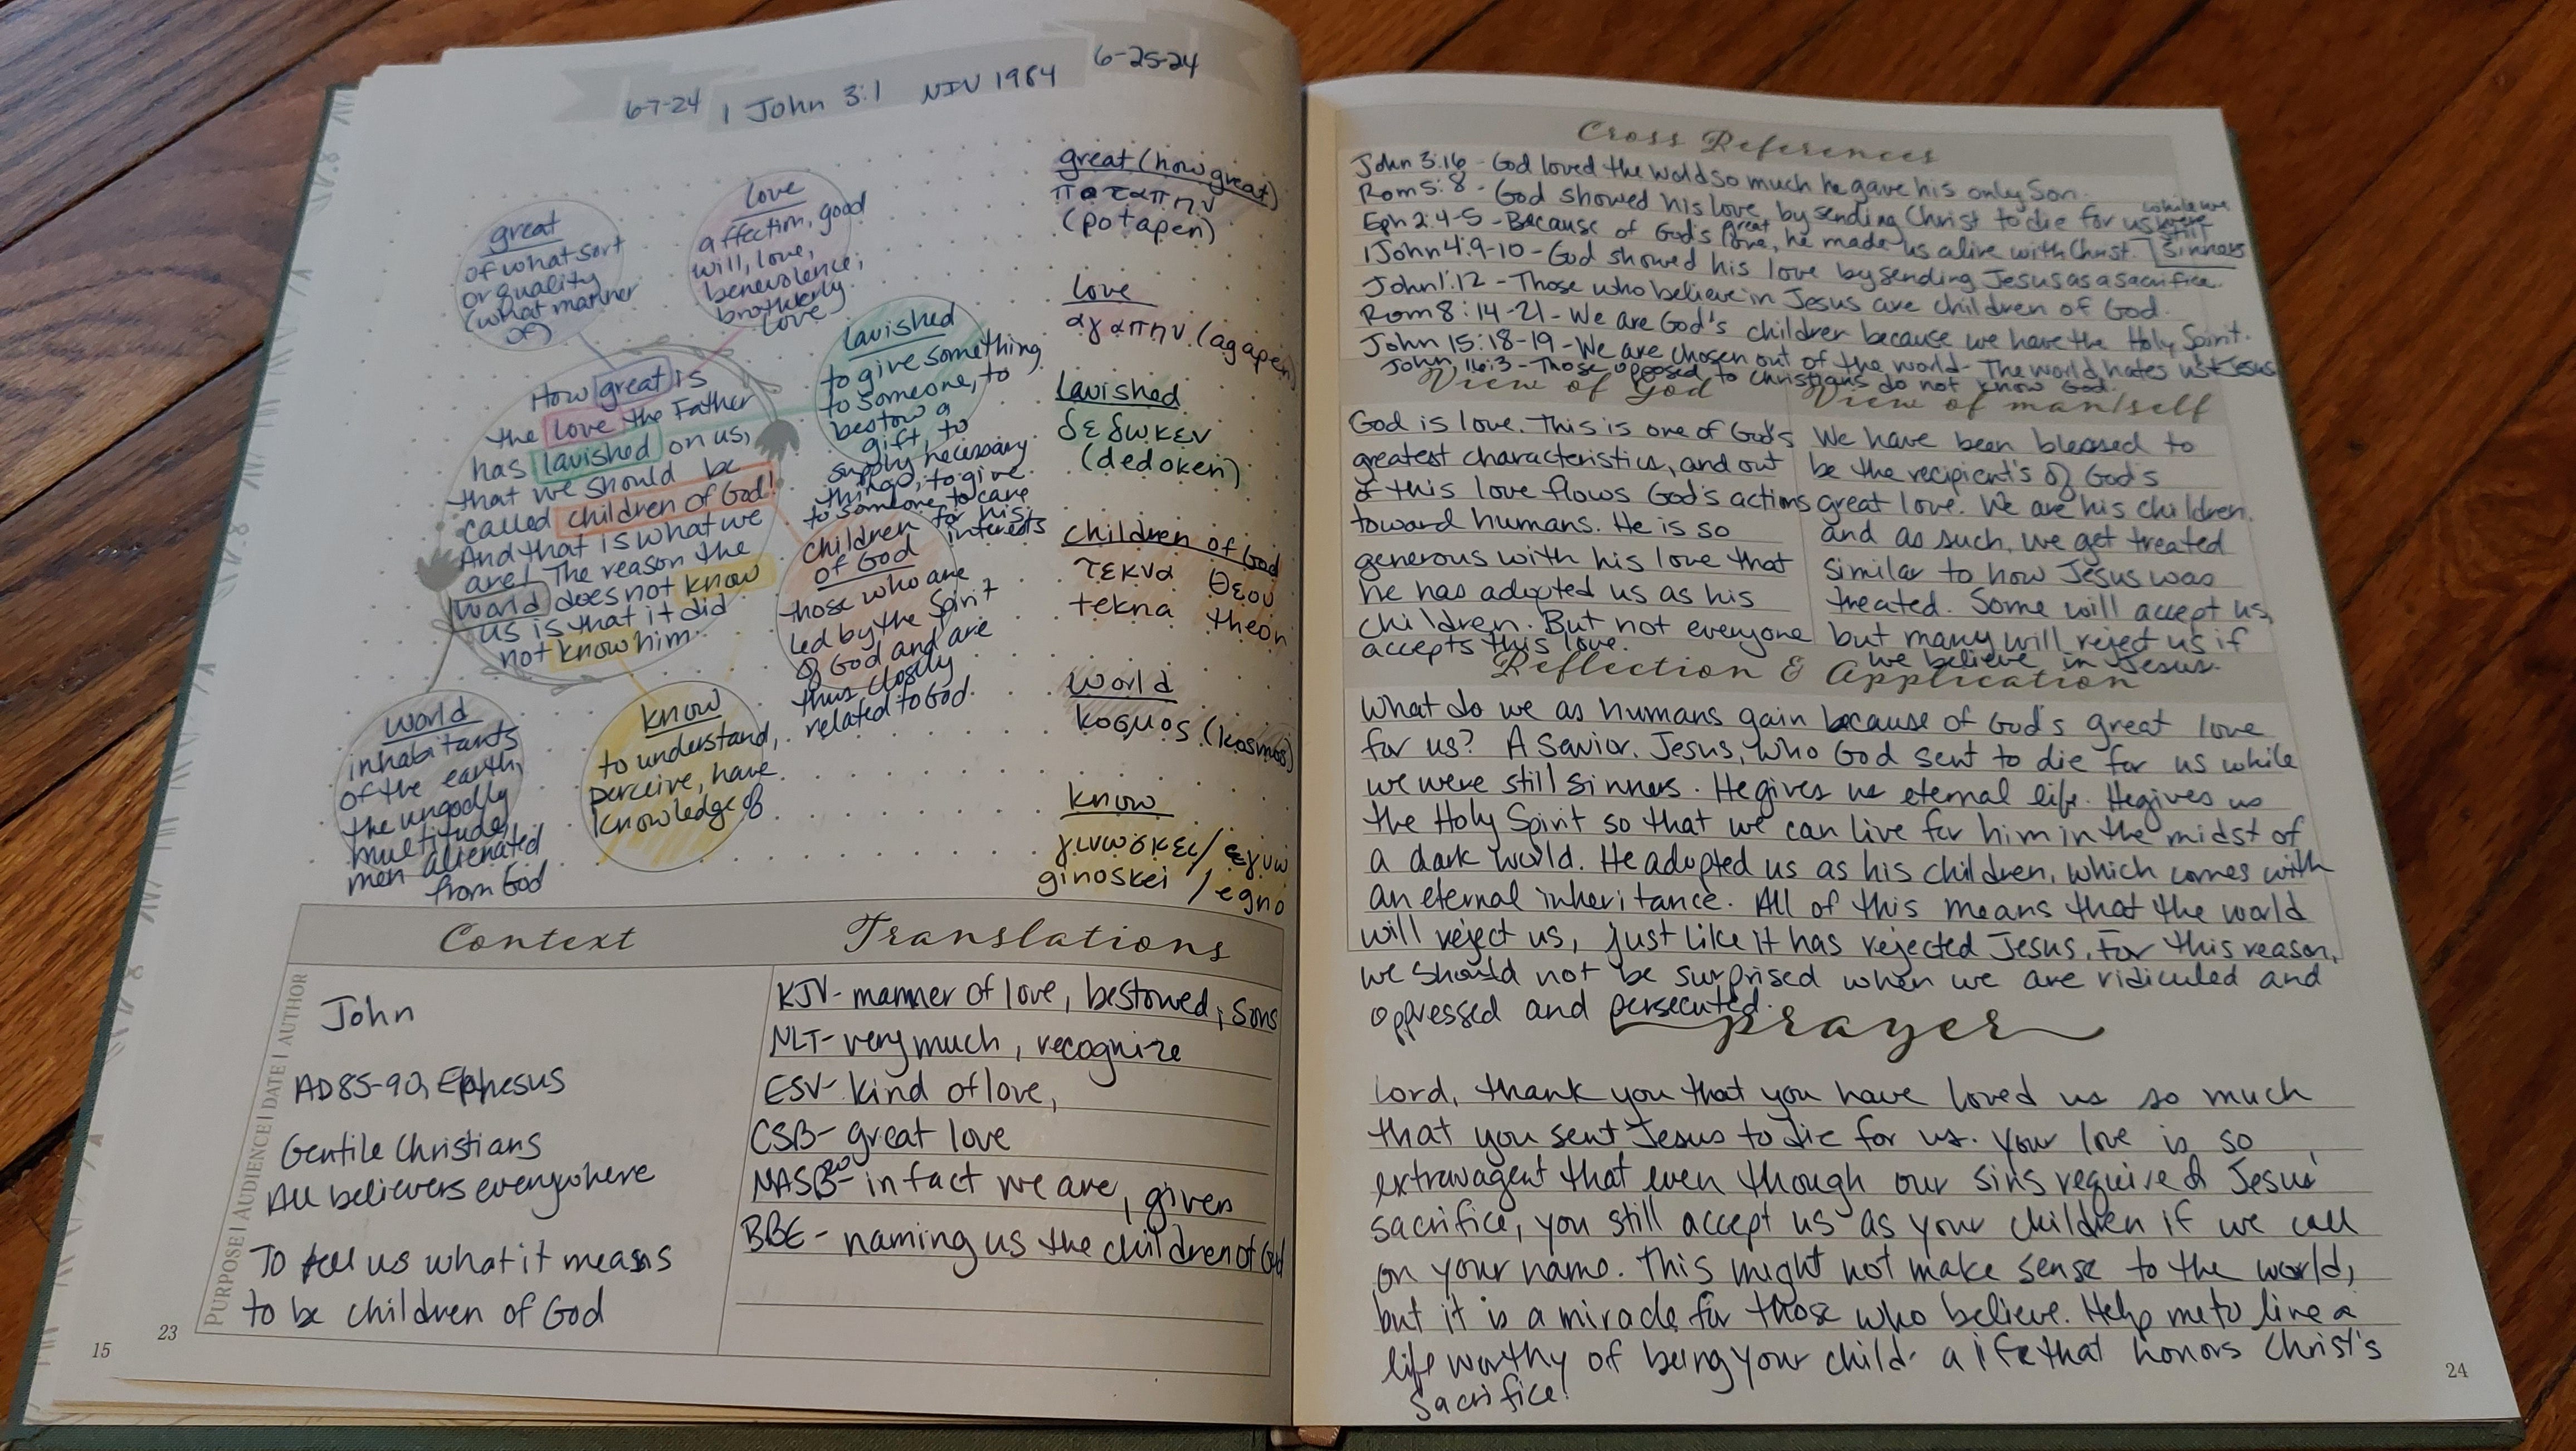 6-7-24 1 John 3:1 NIV 1984 6-25-24
great
of what sort
or quality
(what manner
of)
love
affection, good
will, love,
benevolence;
brotherly
love
lavished
to give something
to someone, to
bestow a
gift, to
supply necessary
things, to give
to someone to care
for his
interests
How great is
the love the Father
has lavished on us,
that we should be
called children of God!
And that is what we
are! The reason the
world does not know
us is that it did
not know him.
children
of God
those who are
led by the Spirit
of God and are
thus closely
related to God.
world
inhabitants
of the earth,
the ungodly
multitude,
men alienated
from God
know
to understand,
perceive, have
knowledge of
great (how great)
ποταπην
(potapen)
love
αγαπην (agapen)
lavished
δεδωκεν
(dedoken)
children of God
τεκνα θεου
tekna theon
world
κοσμος (kosmos)
know
γινωσκει / εγνω
ginoskei / egno
Context
PURPOSE | AUDIENCE | DATE | AUTHOR
John
AD 85-90, Ephesus
Gentile Christians
All believers everywhere
To tell us what it means
to be children of God
Translations
KJV- manner of love, bestowed; sons
NLT- very much, recognize
ESV- kind of love,
CSB- great love
NASB20- in fact we are, given
BBE- naming us the children of God
15
23
Cross References
John 3:16 - God loved the world so much he gave his only Son.
Rom 5:8 - God showed his love by sending Christ to die for us while we
were still
sinners
Eph 2:4-5 - Because of God's great love, he made us alive with Christ.
1 John 4:9-10 - God showed his love by sending Jesus as a sacrifice.
John 1:12 - Those who believe in Jesus are children of God.
Rom 8:14-21 - We are God's children because we have the Holy Spirit.
John 15:18-19 - We are chosen out of the world. The world hates us + Jesus
John 16:3 - Those opposed to Christians do not know God.
View of God
God is love. This is one of God's
greatest characteristics, and out
of this love flows God's actions
toward humans. He is so
generous with his love that
he has adopted us as his
children. But not everyone
accepts this love.
View of man/self
We have been blessed to
be the recipient's of God's
great love. We are his children,
and as such, we get treated
similar to how Jesus was
treated. Some will accept us,
but many will reject us if
we believe in Jesus.
Reflection & Application
What do we as humans gain because of God's great love
for us? A Savior. Jesus, who God sent to die for us while
we were still sinners. He gives us eternal life. He gives us
the Holy Spirit so that we can live for him in the midst of
a dark world. He adopted us as his children, which comes with
an eternal inheritance. All of this means that the world
will reject us, just like it has rejected Jesus. For this reason,
we should not be surprised when we are ridiculed and
oppressed and persecuted.
prayer
Lord, thank you that you have loved us so much
that you sent Jesus to die for us. Your love is so
extravagent that even though our sins required Jesus'
sacrifice, you still accept us as your children if we call
on your name. This might not make sense to the world,
but it is a miracle for those who believe. Help me to live a
life worthy of being your child- a life that honors Christ's
sacrifice!
24